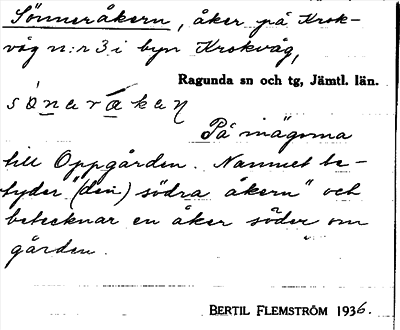 Sönneråkern, åker på Krok-
våg n:r 3 i byn Krokvåg,
Ragunda sn och tg, Jämtl. län.
På mägorna
till Oppgården. Namnet be-
tyder "(den) södra åkern" och
betecknar en åker söder om
gården.
BERTIL FLEMSTRÖM 1936.